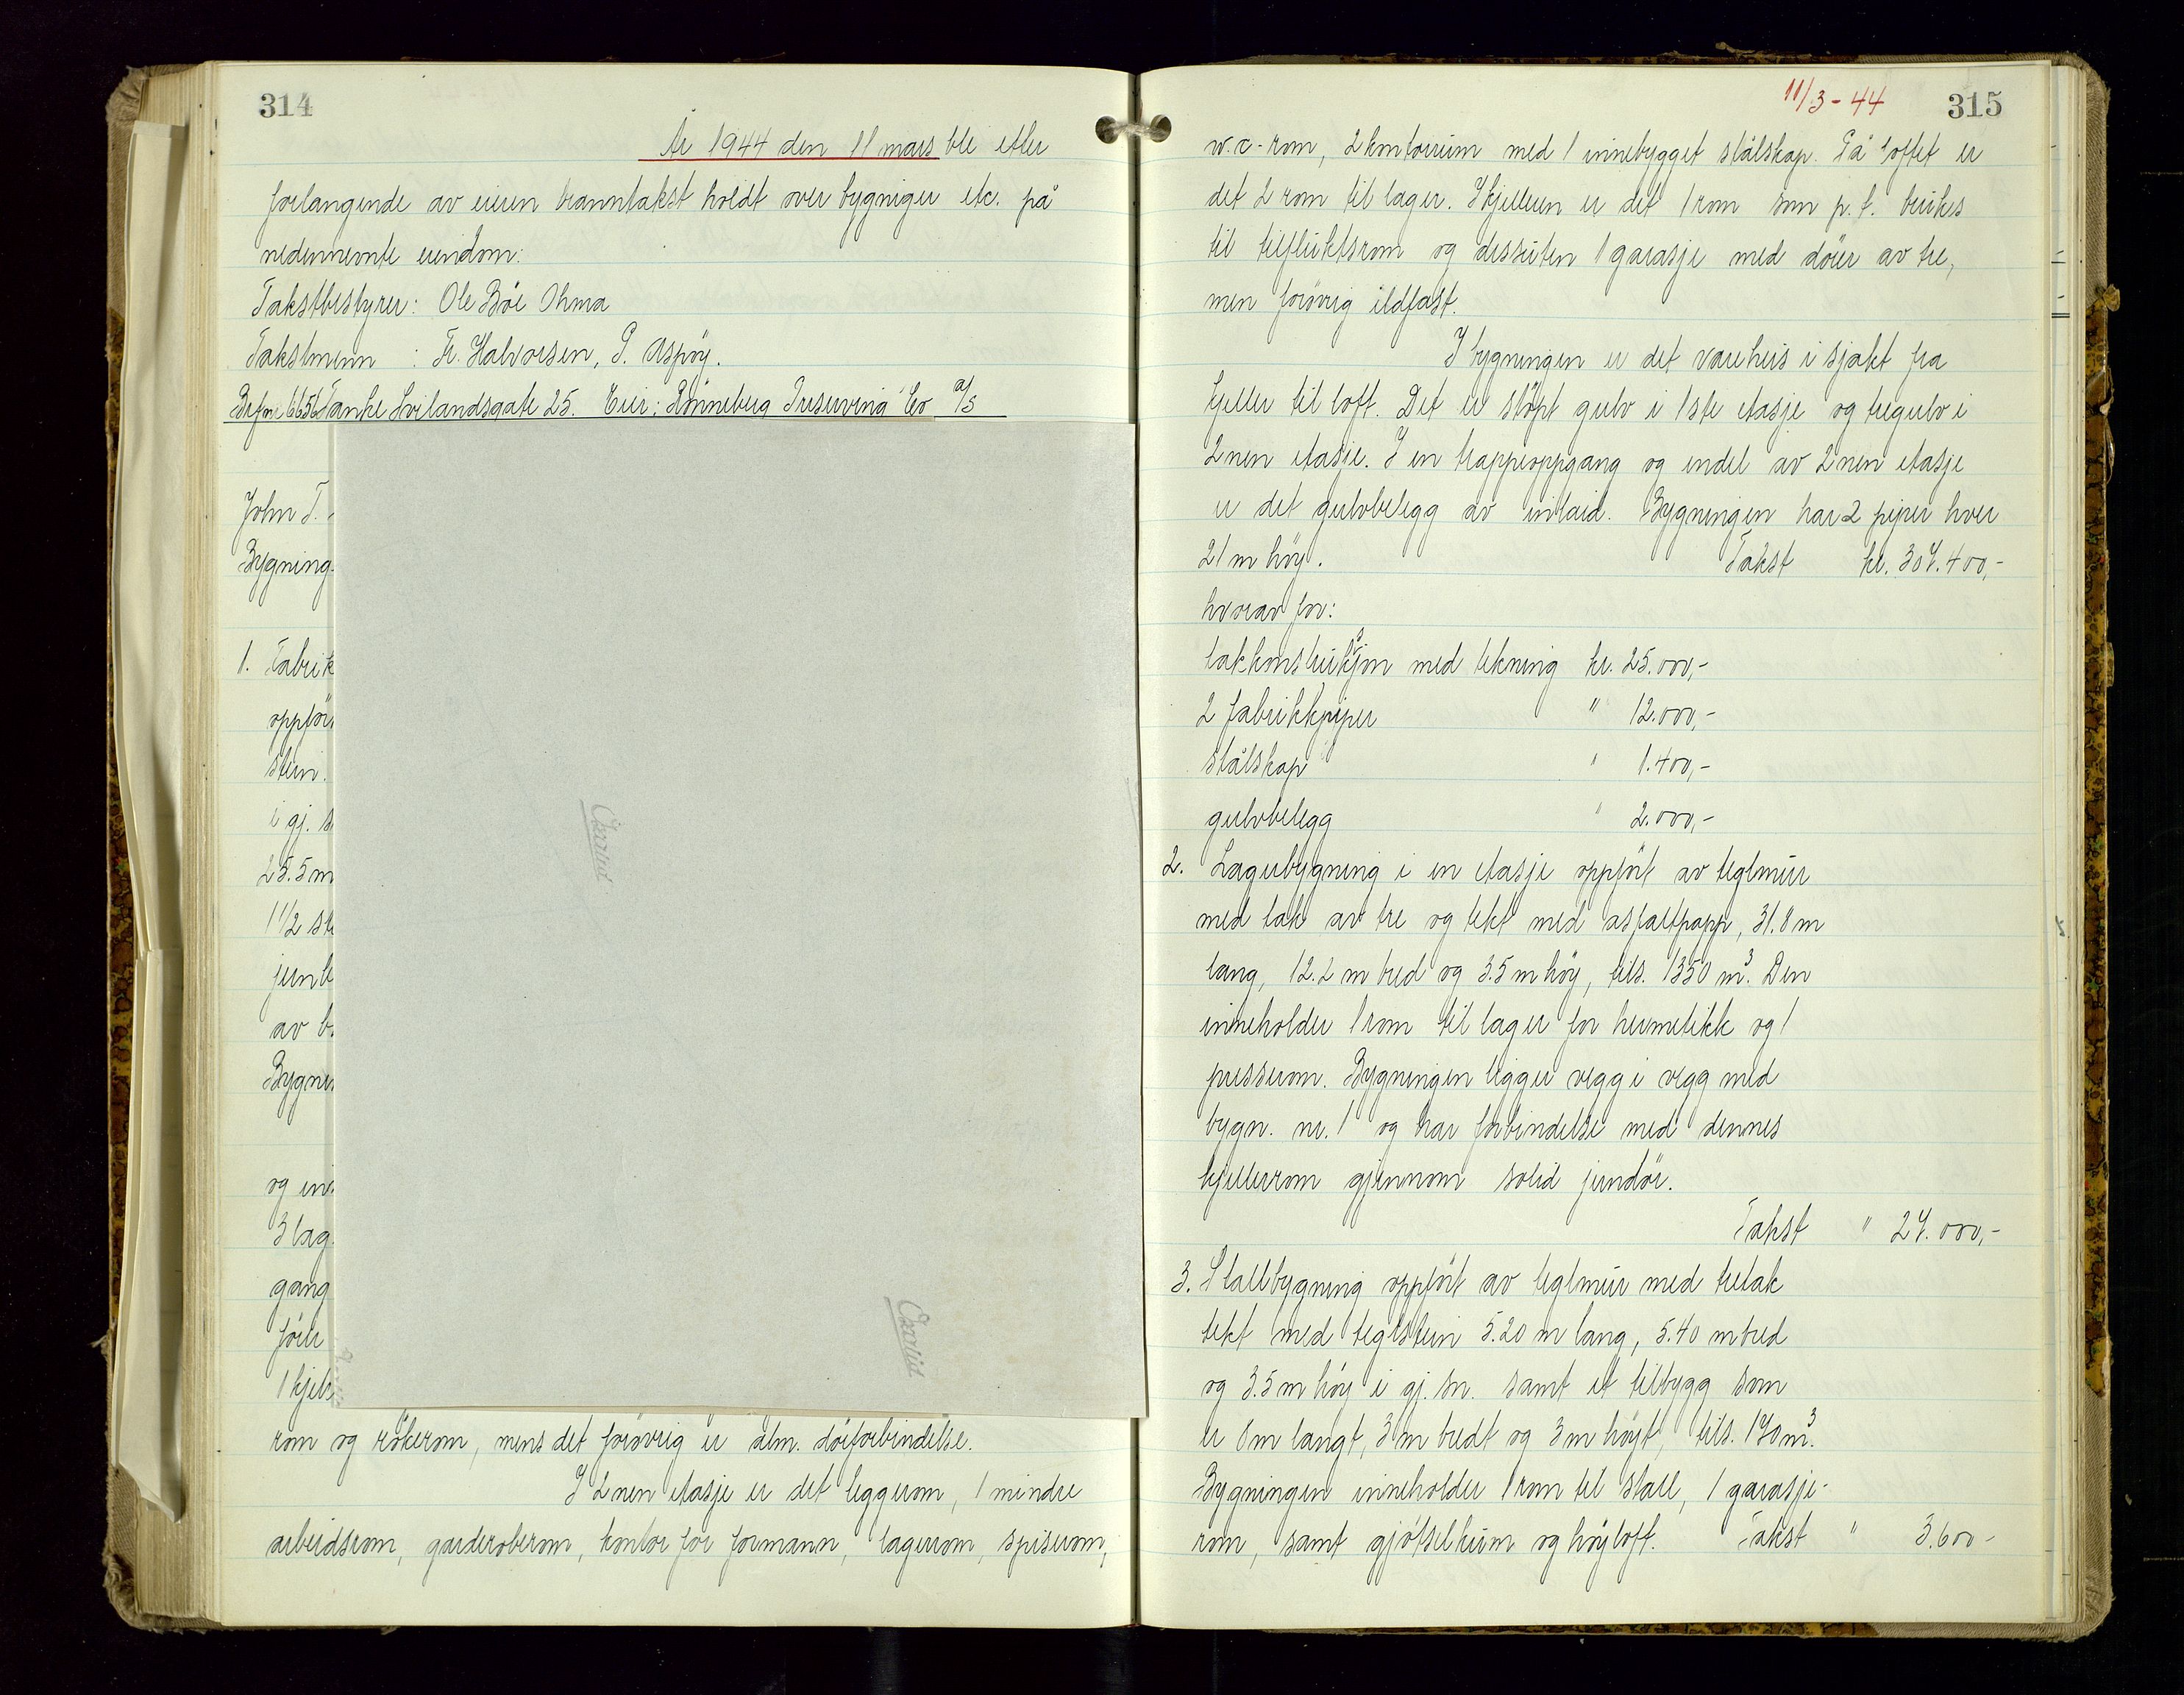 314
År 1944 den 11 mars ble etter
forlangende av eieren branntakst holdt over bygniger etc. på
nedennevnte eiendom:
Takstbestyrer: Ole Böe Ohma
Takstmenn : Fr. Halvorsen, P. Aspöy.
Brfnr 665 Tanke Svilandsgate 25. Eier: Rönneberg Preserving Co a/s
John T.
Bygning
1. Fabrik
oppför
stein.
i gj. s
25.5 m
1 1/2 st
jernb
av b
Bygni
og in
3 lag
gang
förer
1 kjel
rom og rökerom, mens det forövrig er alm. dörforbindelse.
I 2nen etasje er det leggerom, 1 mindre
arbeidsrom, garderoberom, kontor for formann, lagerrom, spiserom,
11/3-44
315
w.c-rom, 2 kontorrum med 1 innebygget stålskap. På loftet er
det 2 rom til lager. I kjelleren er det 1 rom som p.t. brukes
til tilfluktsrom og dessuten 1 garasje med dörer av tre,
men forövrig ildfast.
I bygningen er det vareheis i sjakt fra
kjeller til loft. Det er stöpt gulv i 1ste etasje og tregulv i
2nen etasje. I en trappeoppgang og endel av 2nen etasje
er det gulvbelegg av inlaid. Bygningen har 2 piper hver
21 m höy. Takst kr. 307.400,-
hvorav for:
takkonstruksjon med tekning kr. 25.000,-
2 fabrikkpiper " 12.000,-
stålskap " 1.400,-
gulvbelegg " 2.000,-
2. Lagerbygning i en etasje oppfört av teglmur
med tak av tre og tekt med asfaltpapp, 31.8 m
lang, 12.2 m bred og 3.5 m höy, tils. 1350 m³. Den
inneholder 1 rom til lager for hermetikk og 1
presserom. Bygningen ligger vegg i vegg med
bygn. nr. 1 og har forbindelse med dennes
kjellerrom gjennom solid jerndör.
Takst " 27.000,-
3. Stallbygning oppfört av teglmur med tretak
tekt med teglstein 5.20 m lang, 5.40 m bred
og 3.5 m höy i gj. sn. samt et tilbygg som
er 8 m langt, 3 m bredt og 3 m höyt, tils. 170 m³.
Bygningen inneholder 1 rom til stall, 1 garasje-
rom, samt gjödselkum og höyloft. Takst " 3.600-